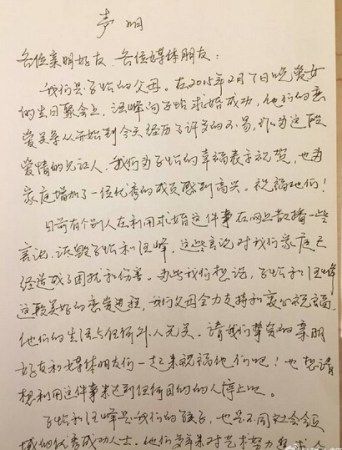 声明
各位亲朋好友、各位媒体朋友：
我们是子怡的父母。在2015年2月7日晚爱女
的生日聚会上，汪峰向子怡求婚成功，他们的恋
爱关系从开始到今天经历了许多的不易，作为这段
爱情的见证人，我们为子怡的幸福表示祝贺，也为
家庭增加了一位优秀的成员感到高兴。祝福他们！
日前有个别人在利用求婚这件事在网上散播一些
言论，诋毁子怡和汪峰，这些言论对我们家庭已
经造成了困扰和伤害。为此我们想说，子怡和汪峰
这段美好的恋爱过程，我们父母全力支持和衷心祝福
他们的生活与任何外人无关。请我们挚爱的亲朋
好友和媒体朋友们一起来祝福他们吧！也想请
想利用这件事来达到任何目的的人停止吧。
子怡和汪峰是我们的孩子，也是不同社会领
域的优秀成功人士。他们多年来对艺术努力